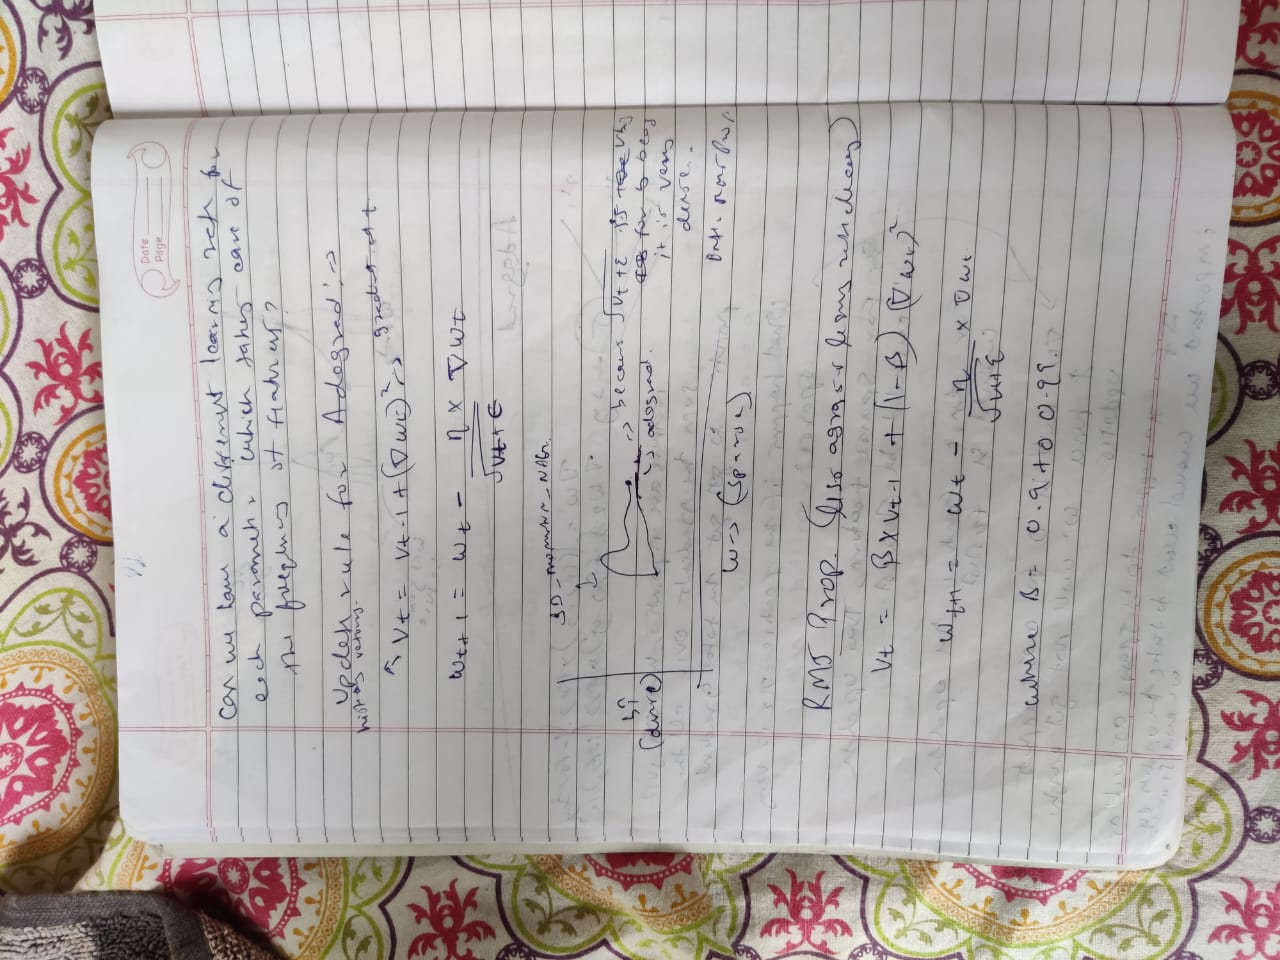 Date
Page
Can we have a different learning rate for
each parameter which takes care of
the frequency of features?
Update rule for Adagrad :→
history
Vt = Vt-1 + (∇wt)² → gradient at t
wt+1 = wt - η/√(Vt+ε) × ∇wt
GD_momentum_NAG
b↑ (dense)
→ because √(Vt+ε) is
for b
it is very
dense..
→ adagrad.
w→ (sparse)
RMS Prop.
Vt = β × Vt-1 + (1-β) (∇wt)²
wt+1 = wt - η/√(Vt+ε) × ∇wt
where β = 0.9 to 0.99.